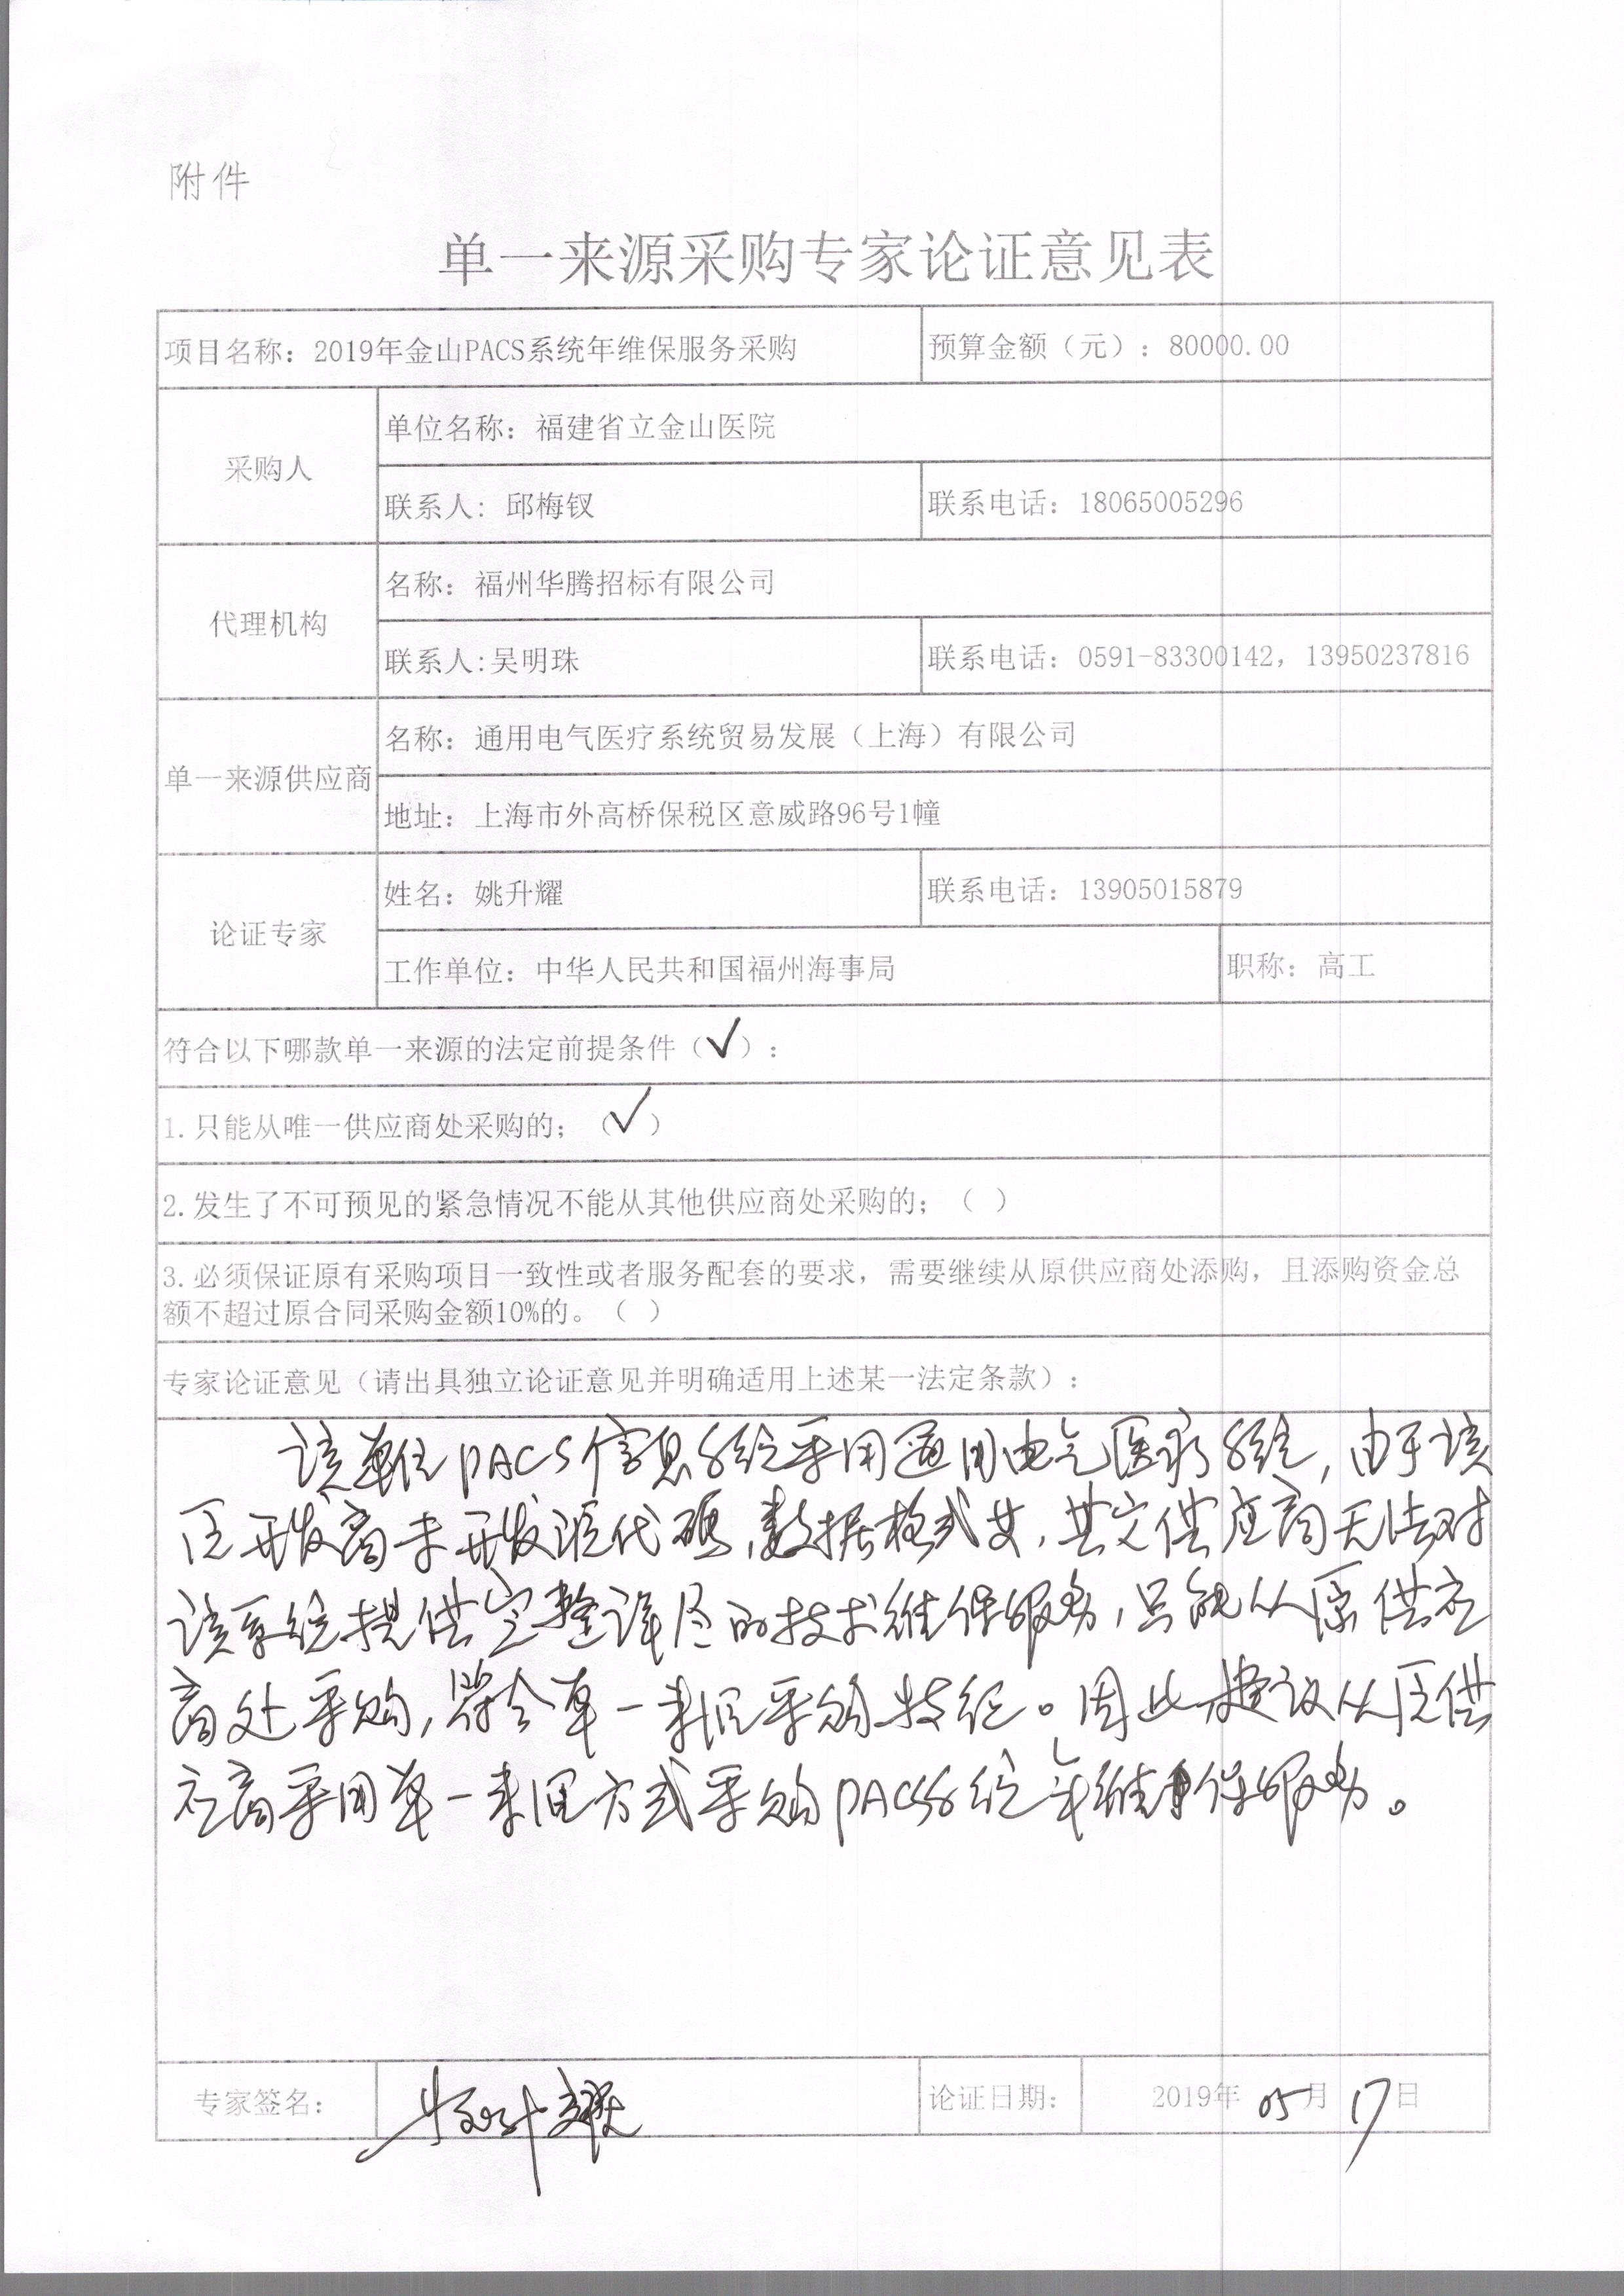 附件
单一来源采购专家论证意见表
项目名称：2019年金山PACS系统年维保服务采购
预算金额（元）：80000.00
采购人
单位名称：福建省立金山医院
联系人：邱梅钗
联系电话：18065005296
代理机构
名称：福州华腾招标有限公司
联系人:吴明珠
联系电话：0591-83300142，13950237816
单一来源供应商
名称：通用电气医疗系统贸易发展（上海）有限公司
地址：上海市外高桥保税区意威路96号1幢
论证专家
姓名：姚升耀
联系电话：13905015879
工作单位：中华人民共和国福州海事局
职称：高工
符合以下哪款单一来源的法定前提条件（√）：
1.只能从唯一供应商处采购的；（√）
2.发生了不可预见的紧急情况不能从其他供应商处采购的；（ ）
3.必须保证原有采购项目一致性或者服务配套的要求，需要继续从原供应商处添购，且添购资金总
额不超过原合同采购金额10%的。（ ）
专家论证意见（请出具独立论证意见并明确适用上述某一法定条款）：
该单位PACS信息系统采用通用电气医疗系统，由于该
原开发商未开发源代码，数据格式，其它供应商无法对
该系统提供完整详尽的技术维保服务，只能从原供应
商处采购，符合单一来源采购。因此建议从原供
应商采用单一来源方式采购PACS系统年维保服务。
专家签名：
姚升耀
论证日期：
2019年 05月 17日